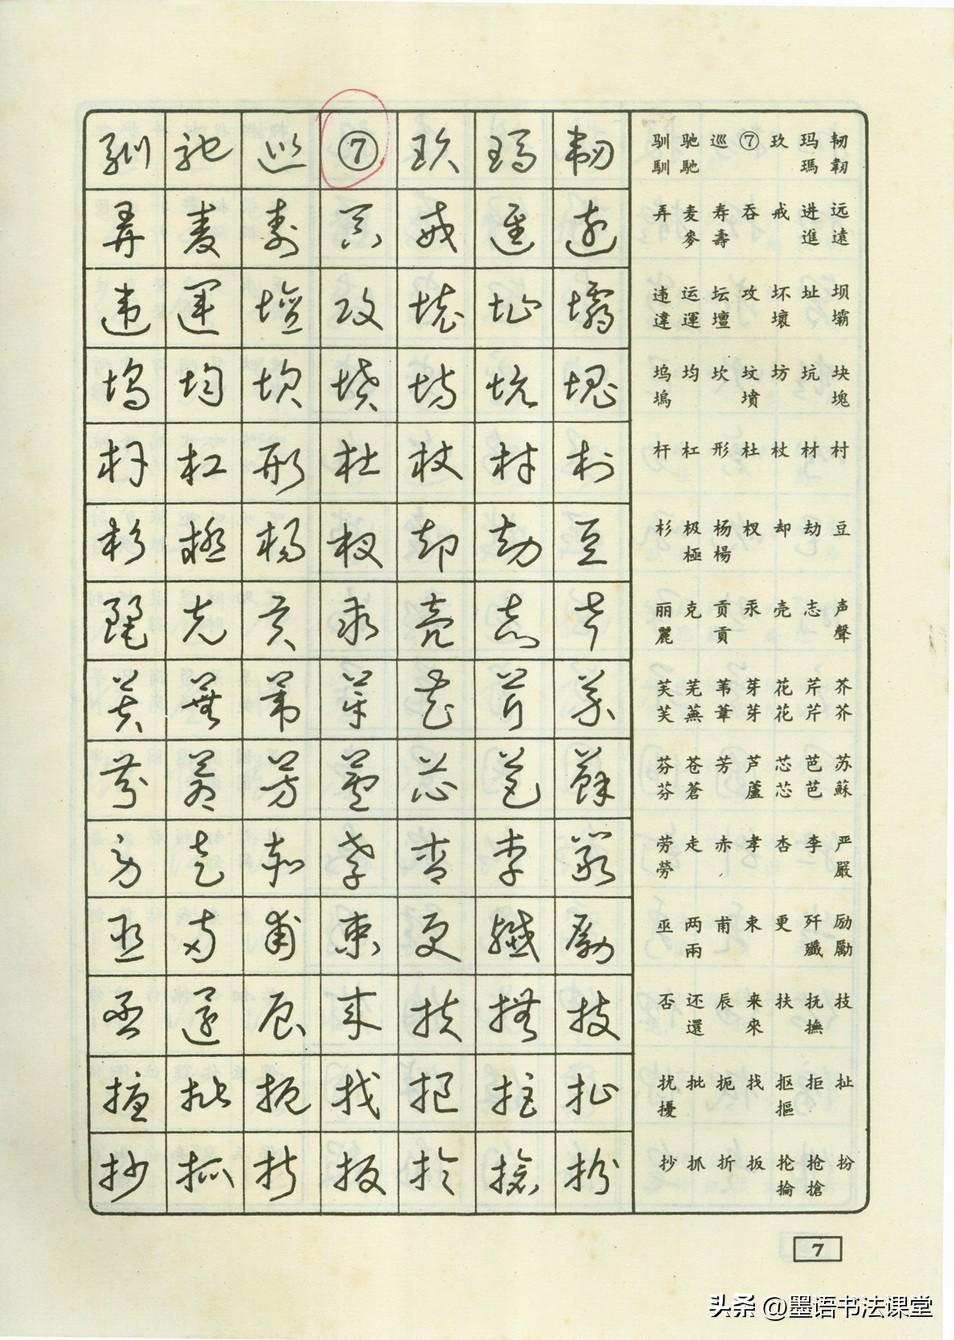 驯 驰 巡 ⑦ 玖 玛 韧
馴 馳 瑪 韌
弄 麦 寿 吞 戒 进 远
麥 壽 進 遠
违 运 坛 攻 坏 址 坝
違 運 壇 壞 壩
坞 均 坎 坟 坊 坑 块
塢 墳 塊
杆 杠 形 杜 杖 材 村
杉 极 杨 杈 却 劫 豆
極 楊
丽 克 贡 汞 壳 志 声
麗 貢 聲
芙 芜 苇 芽 花 芹 芥
芙 蕪 葦 芽 花 芹 芥
芬 苍 芳 芦 芯 芭 苏
芬 蒼 蘆 芯 芭 蘇
劳 走 赤 孝 杏 李 严
勞 嚴
巫 两 甫 束 更 歼 励
兩 殲 勵
否 还 辰 来 扶 抚 技
還 來 撫
扰 批 扼 找 抠 拒 扯
擾 摳
抄 抓 折 扳 抡 抢 扮
掄 搶
7
头条 @墨语书法课堂